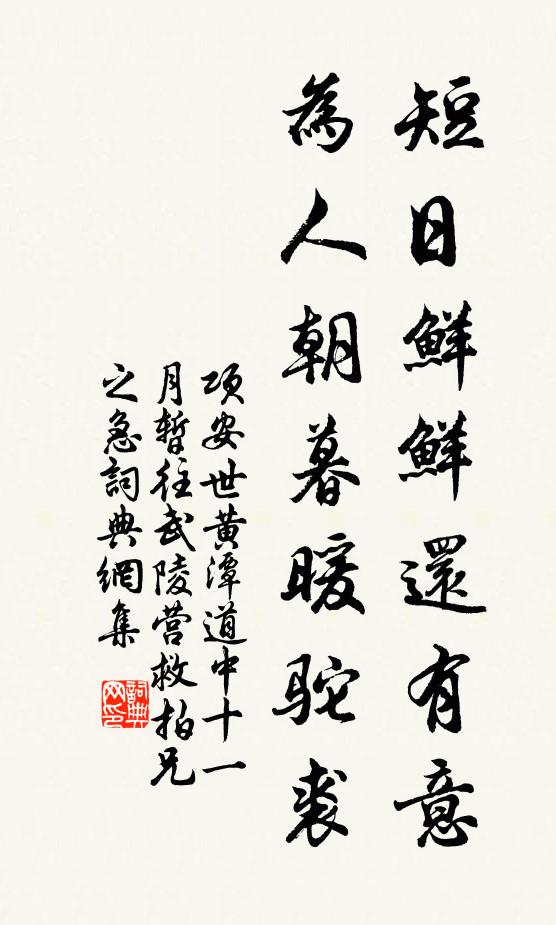 短日鮮鮮還有意
為人朝暮暖駝裘
項安世黃潭道中十一
月暫往武陵营救拍兄
之急詞典網集
詞典
网印